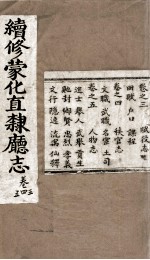 卷之三 賦役志
田賦 戶口 課程
卷之四 秩官志
文職 武職 名宦 土司
卷之五 人物志
進士 舉人 武舉 貢生
馳封 鄉賢 忠烈 孝義
文行 隱逸 流寓 仙釋
續修蒙化直隸廳志